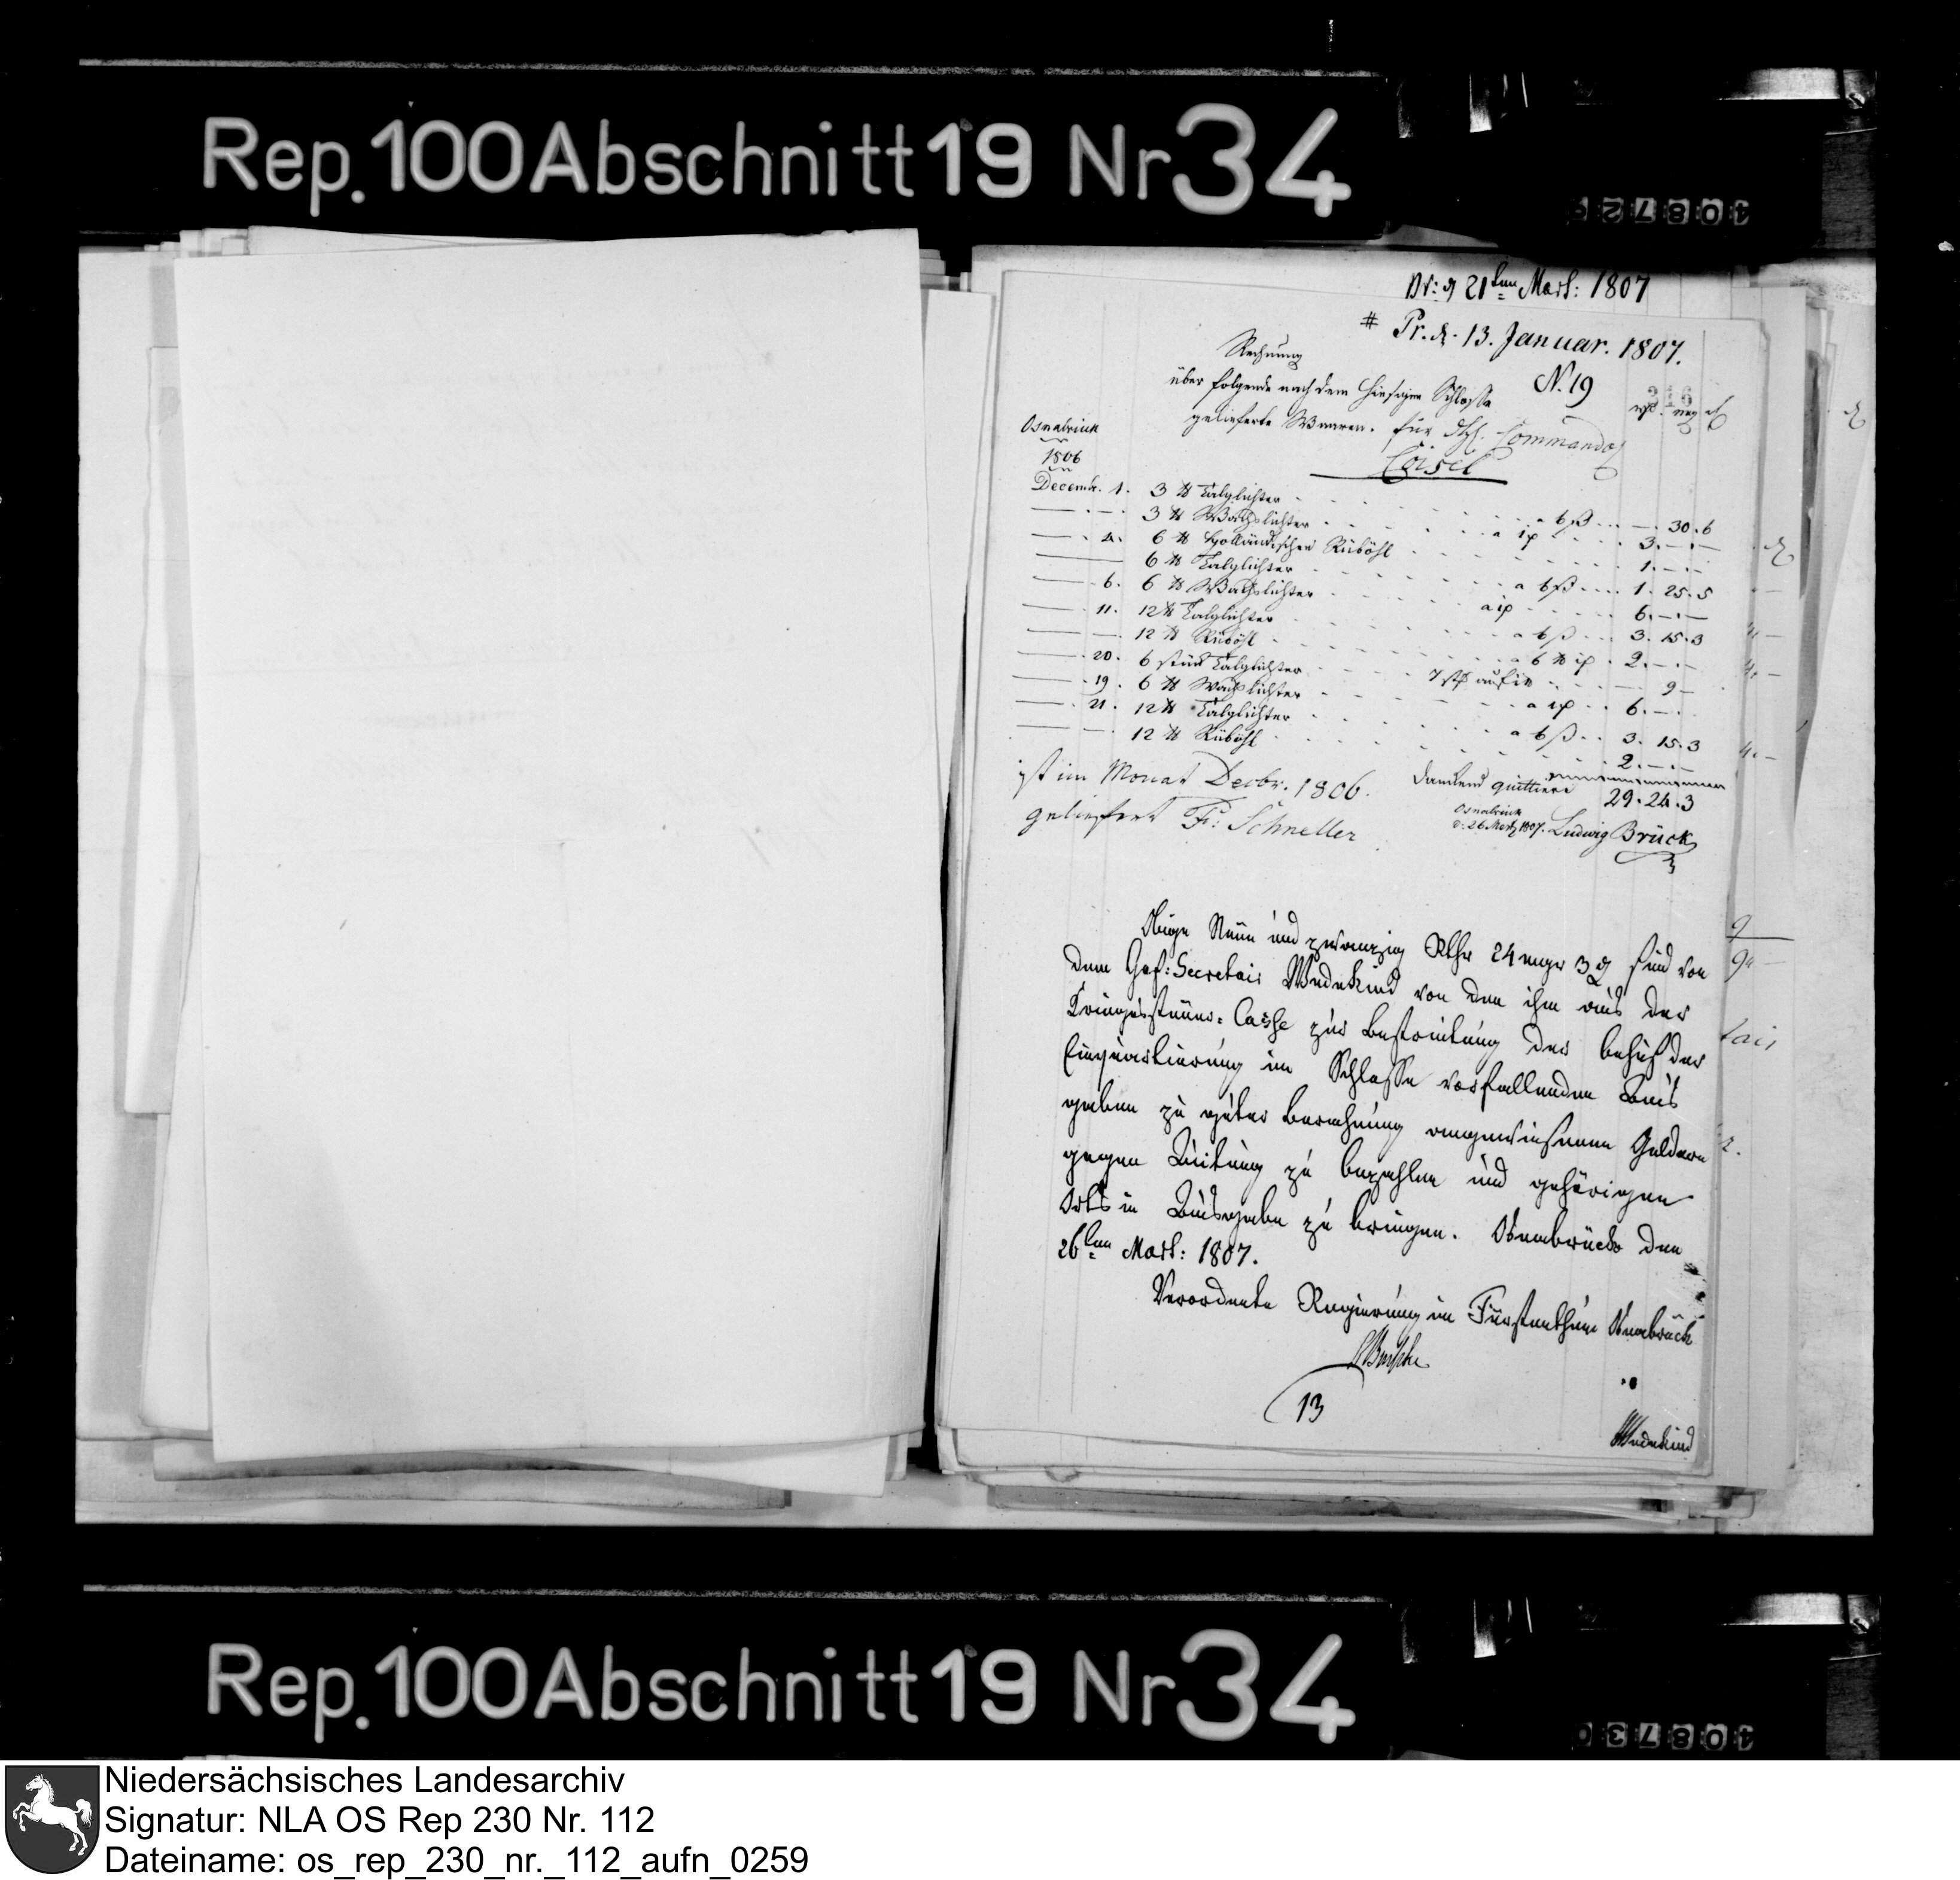 Rep. 100 Abschnitt 19 Nr 34
40872
21ten Mart: 1807
# Pr. d. 13. Januar. 1807.
Rechnung
N. 19
316
über folgende nach dem hiesigen Schlosse
gelieferte Waaren. für Commando
Osnabrück
1806
Decembr. 1. 3 ℔ Talglichter a 6 ß — 30. 6
— — 3 ℔ Wachslichter a 1 3. — —
— 4. 6 ℔ Holländischen Rüböhl 1. — —
— 6 ℔ Talglichter a 6 ß 1. 25. 5
— 6. 6 ℔ Wachslichter a 1 6. — —
— 11. 12 ℔ Talglichter a 6 ß 3. 15. 3
— — 12 ℔ Rüböhl a 6 ℔ 1 2. — —
— 20. 6 stück Talglichter — 9 —
— 19. 6 ℔ Wachslichter a 1 6. — —
— 21. 12 ℔ Talglichter a 6 ß 3. 15. 3
— — 12 ℔ Rüböhl 2. — —
29. 24. 3
ist im Monat Decbr. 1806.
geliefert F: Schneller
dankend quittiere
Osnabrück
d. 26 Mertz 1807. Ludwig Brück
Obige Neün und zwanzig Rthr 24 mgr 3 ₰ sind von
dem Geh: Secretair Wedekind von den ihm aus der
Kriegessteuer-Casse zur Bestreitung der behuf der
Einquartierung im Schlosse vorfallenden Aus
gaben zu guter Berechnung angewiesenen Geldern
gegen Quitung zu bezahlen und gehörigen
Orts in Ausgabe zu bringen. Osnabrück den
26ten Mart: 1807.
Verordnete Regierung im Fürstenthum Osnabrück
13
Wedekind
tair
Rep. 100 Abschnitt 19 Nr 34
40873
Niedersächsisches Landesarchiv
Signatur: NLA OS Rep 230 Nr. 112
Dateiname: os_rep_230_nr._112_aufn_0259